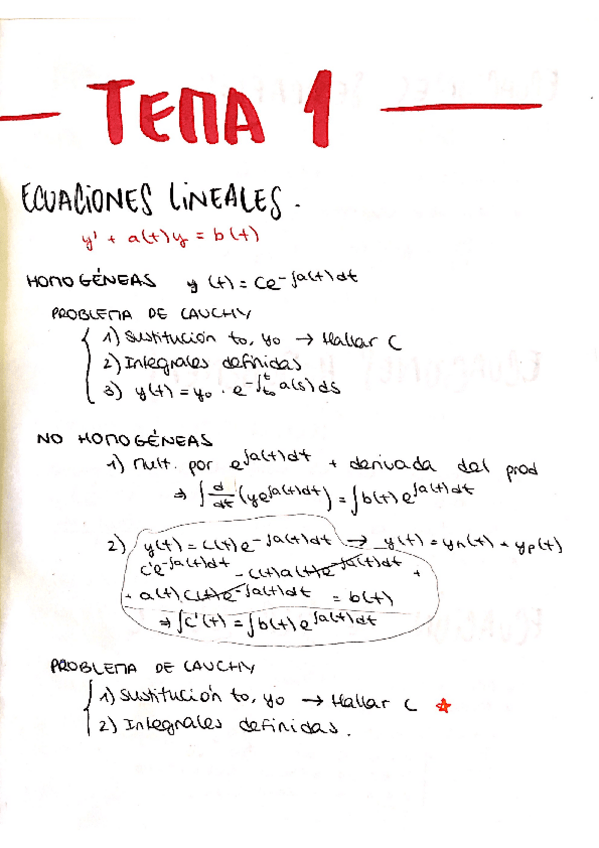 TEMA 1
ECUACIONES LINEALES.
y' + a(t)y = b(t)
HOMOGÉNEAS y(t) = Ce^{-∫a(t)dt}
PROBLEMA DE CAUCHY
1) Sustitución to, yo → Hallar C
2) Integrales definidas
3) y(t) = yo · e^{-∫_{to}^{t} a(s)ds}
NO HOMOGÉNEAS
1) Mult. por e^{∫a(t)dt} + derivada del prod
⇒ ∫ d/dt (ye^{∫a(t)dt}) = ∫b(t)e^{∫a(t)dt}
2) y(t) = C(t)e^{-∫a(t)dt} → y(t) = yh(t) + yp(t)
C'e^{-∫a(t)dt} - C(t)a(t)e^{-∫a(t)dt} +
+ a(t)C(t)e^{-∫a(t)dt} = b(t)
⇒ ∫C'(t) = ∫b(t)e^{∫a(t)dt}
PROBLEMA DE CAUCHY
1) Sustitución to, yo → Hallar C ☆
2) Integrales definidas.